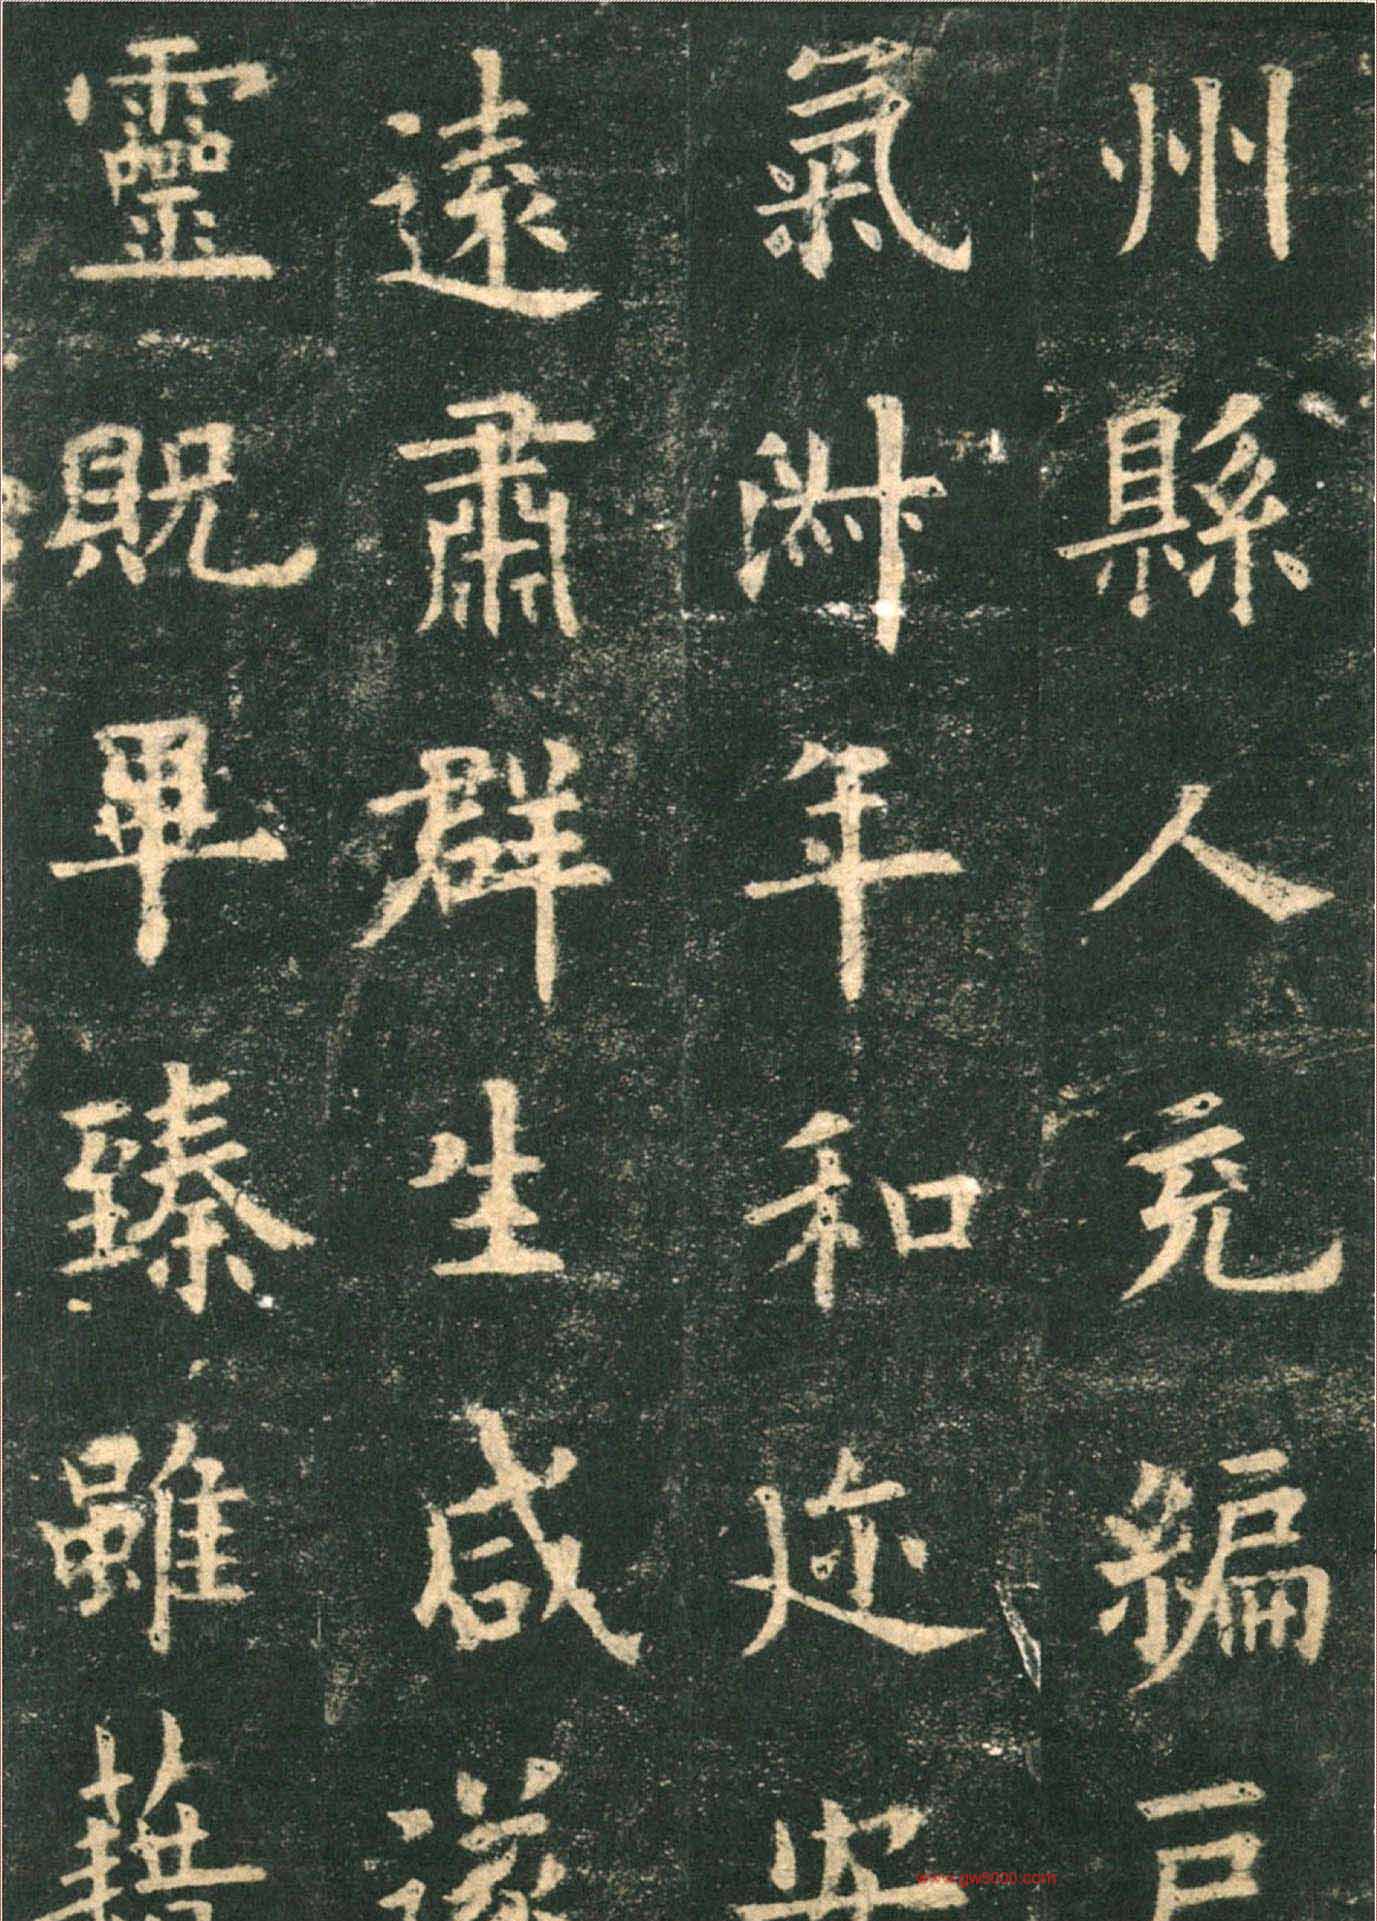 州縣人充編戶
氣淑年和迩安
遠肅群生咸遂
靈貺畢臻雖藉
www.gw8000.com